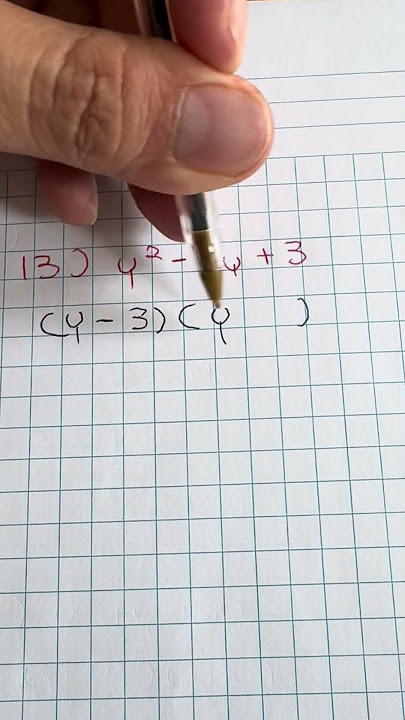 13) y² - y + 3
(y - 3) (y )